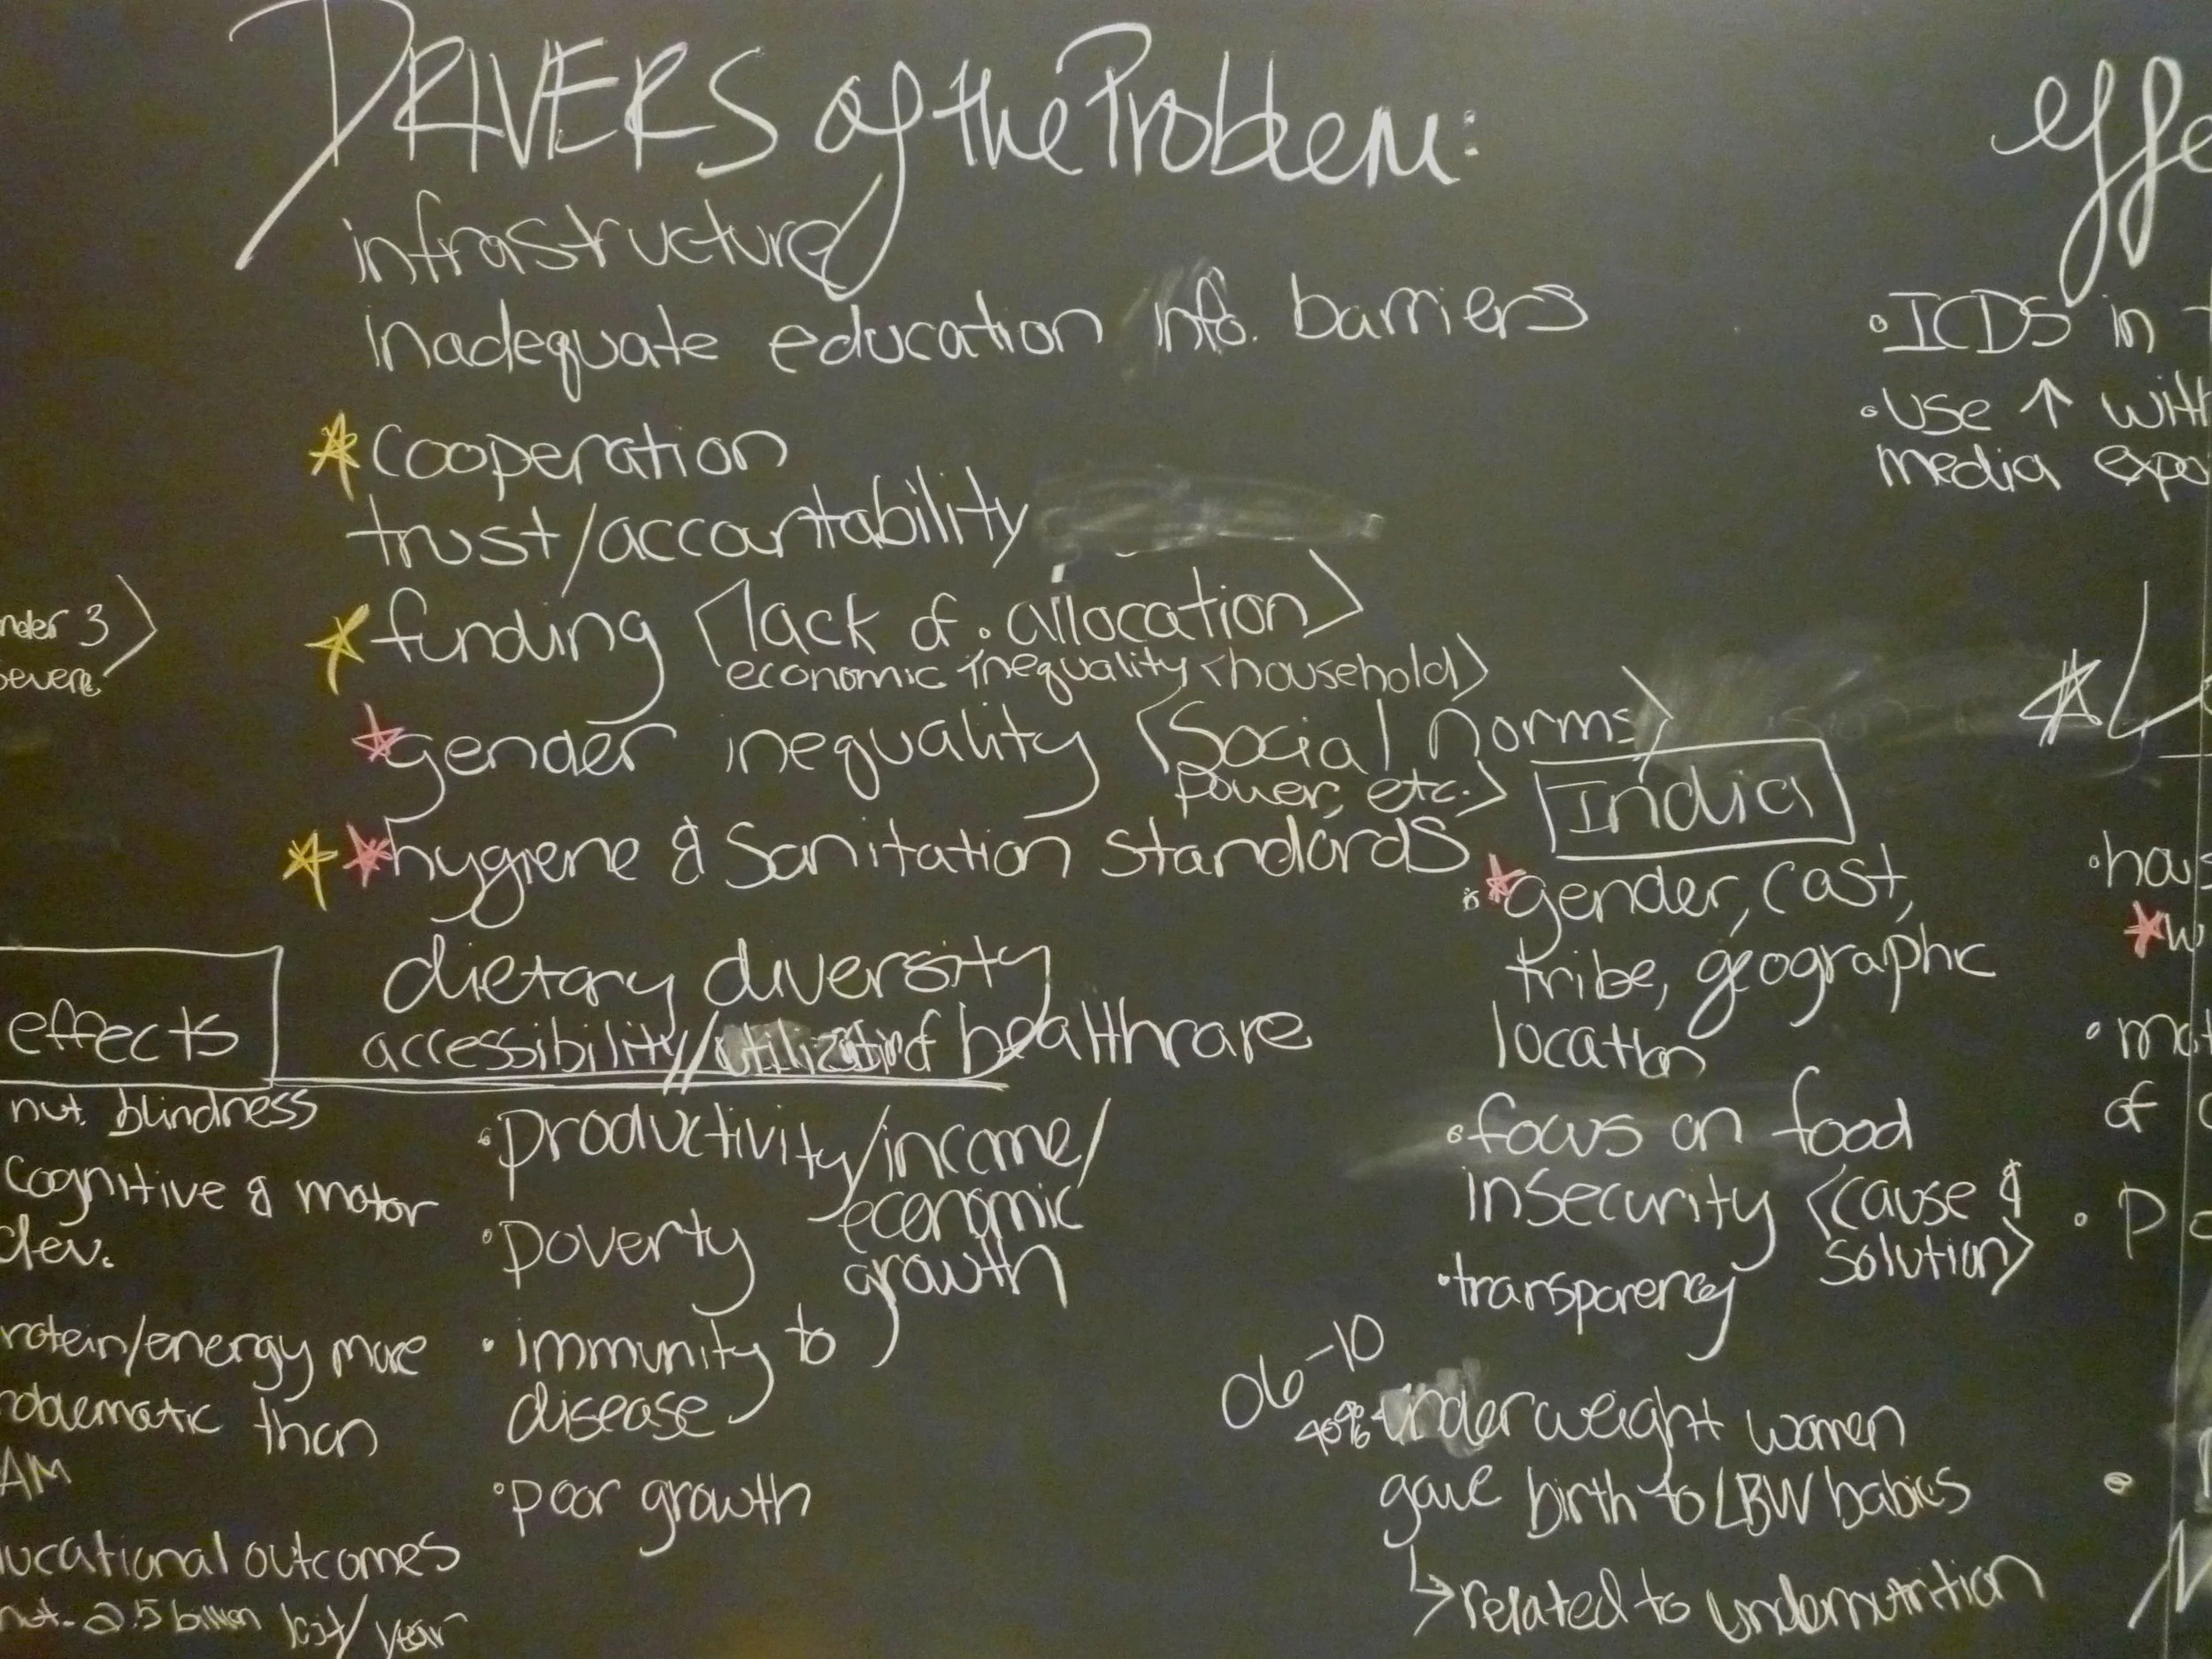 DRIVERS of the Problem:
infrastructure
inadequate education info. barriers
cooperation
trust/accountability
funding <lack of allocation>
economic inequality <household>
gender inequality <social norms>
power, etc.>
hygiene & Sanitation standards
dietary diversity
accessibility/utilization of healthcare
nder 3>
severe
effects
nut. blindness
cognitive & motor
dev.
rotein/energy more
oblematic than
AM
ucational outcomes
nut. 2.5 billion lost/year
productivity/income/
economic
growth
poverty
immunity to
disease
poor growth
India
gender, cast,
tribe, geographic
location
focus on food
insecurity <cause &
solution>
transparency
06-10
underweight women
gave birth to LBW babies
related to undernutrition
effe
ICDS in
use ↑ with
media expo
of